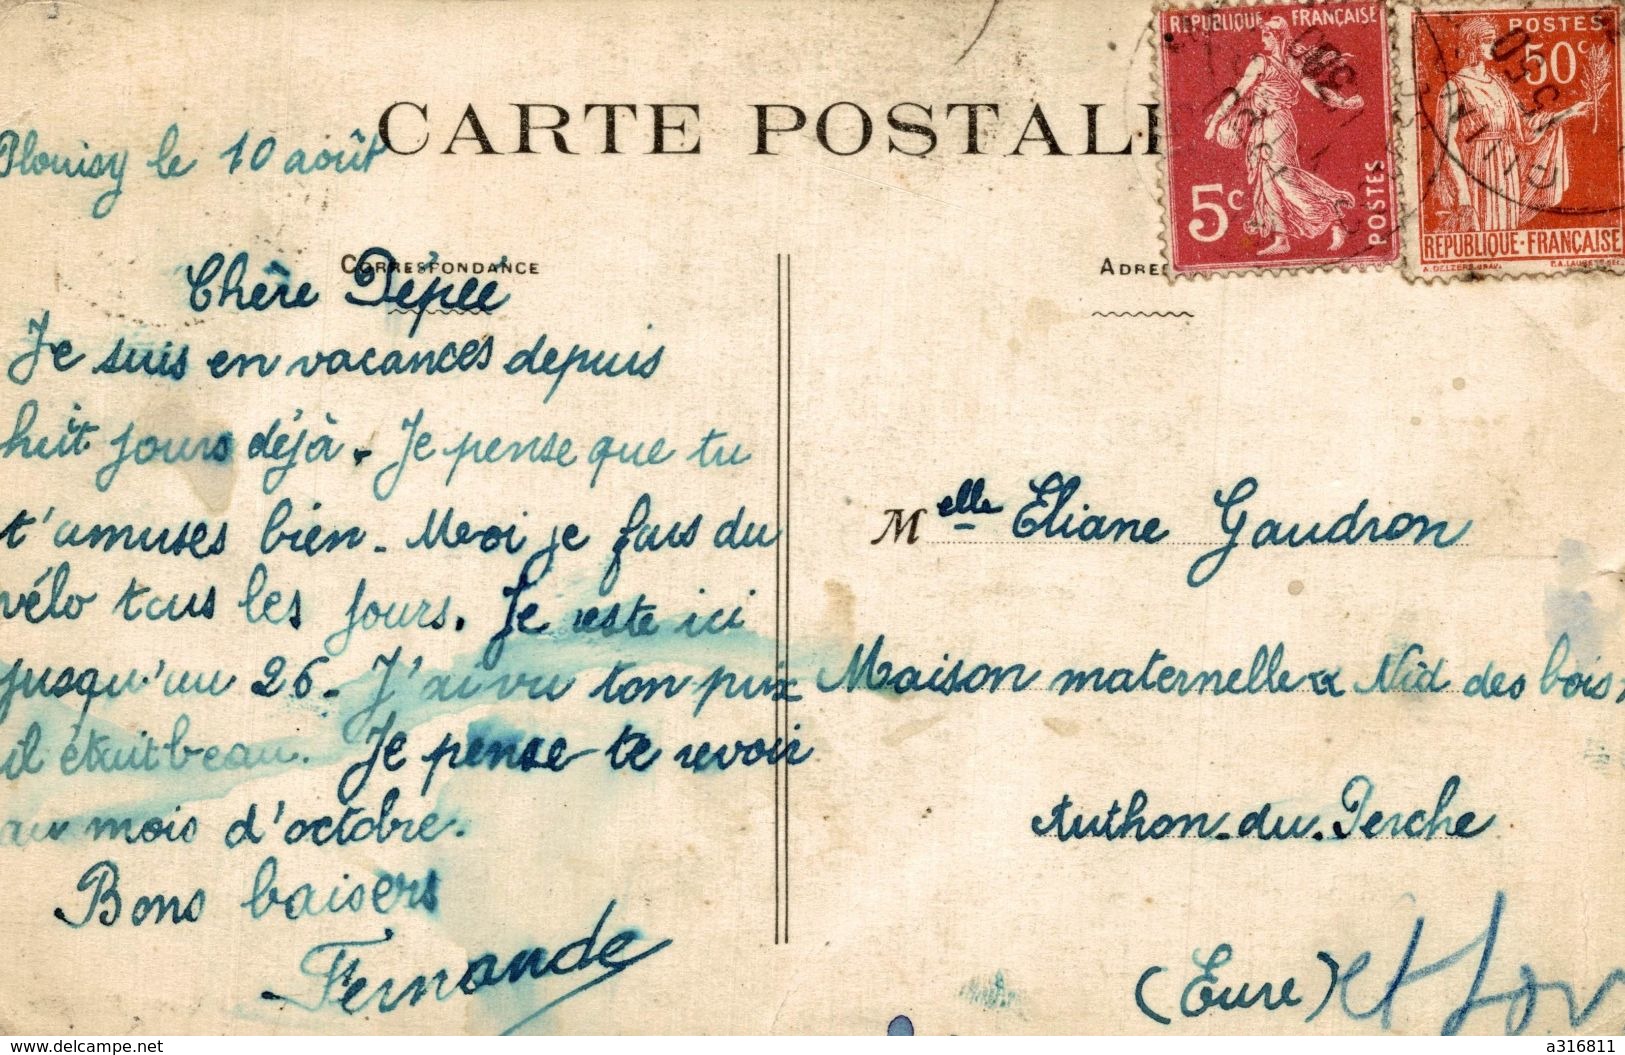 CARTE POSTALE
Plouisy le 10 août
CORRESPONDANCE
Chère Dépée
Je suis en vacances depuis
huit jours déjà. Je pense que tu
t'amuses bien. Moi je fais du
vélo tous les jours. Je reste ici
jusqu'au 26. J'ai vu ton prix
il était beau. Je pense te revoir
au mois d'octobre.
Bons baisers
Fernande
REPUBLIQUE FRANÇAISE
5c
POSTES
POSTES
50c
REPUBLIQUE-FRANÇAISE
ADRES
Melle Eliane Gaudron
Maison maternelle « Nid des bois »
Authon-du-Perche
(Eure) et Loir
www.delcampe.net
a316811